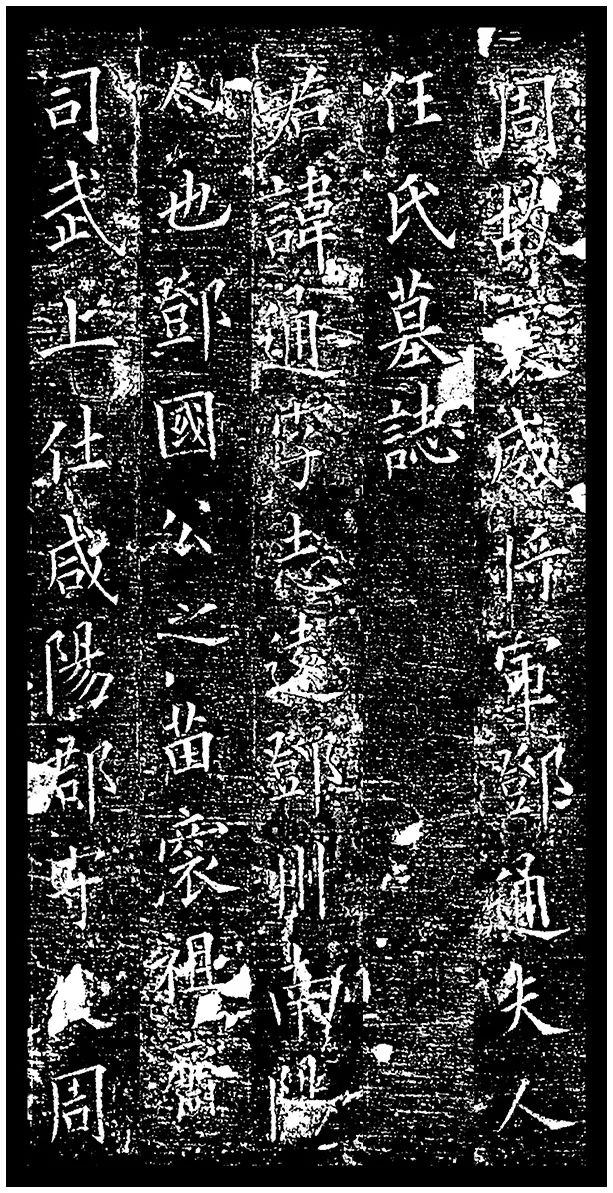 周故襄威將軍鄧通夫人
任氏墓誌
君諱通字志遠鄧州南陽
人也鄧國公之苗裔祖齊
司武上仕咸陽郡守父周